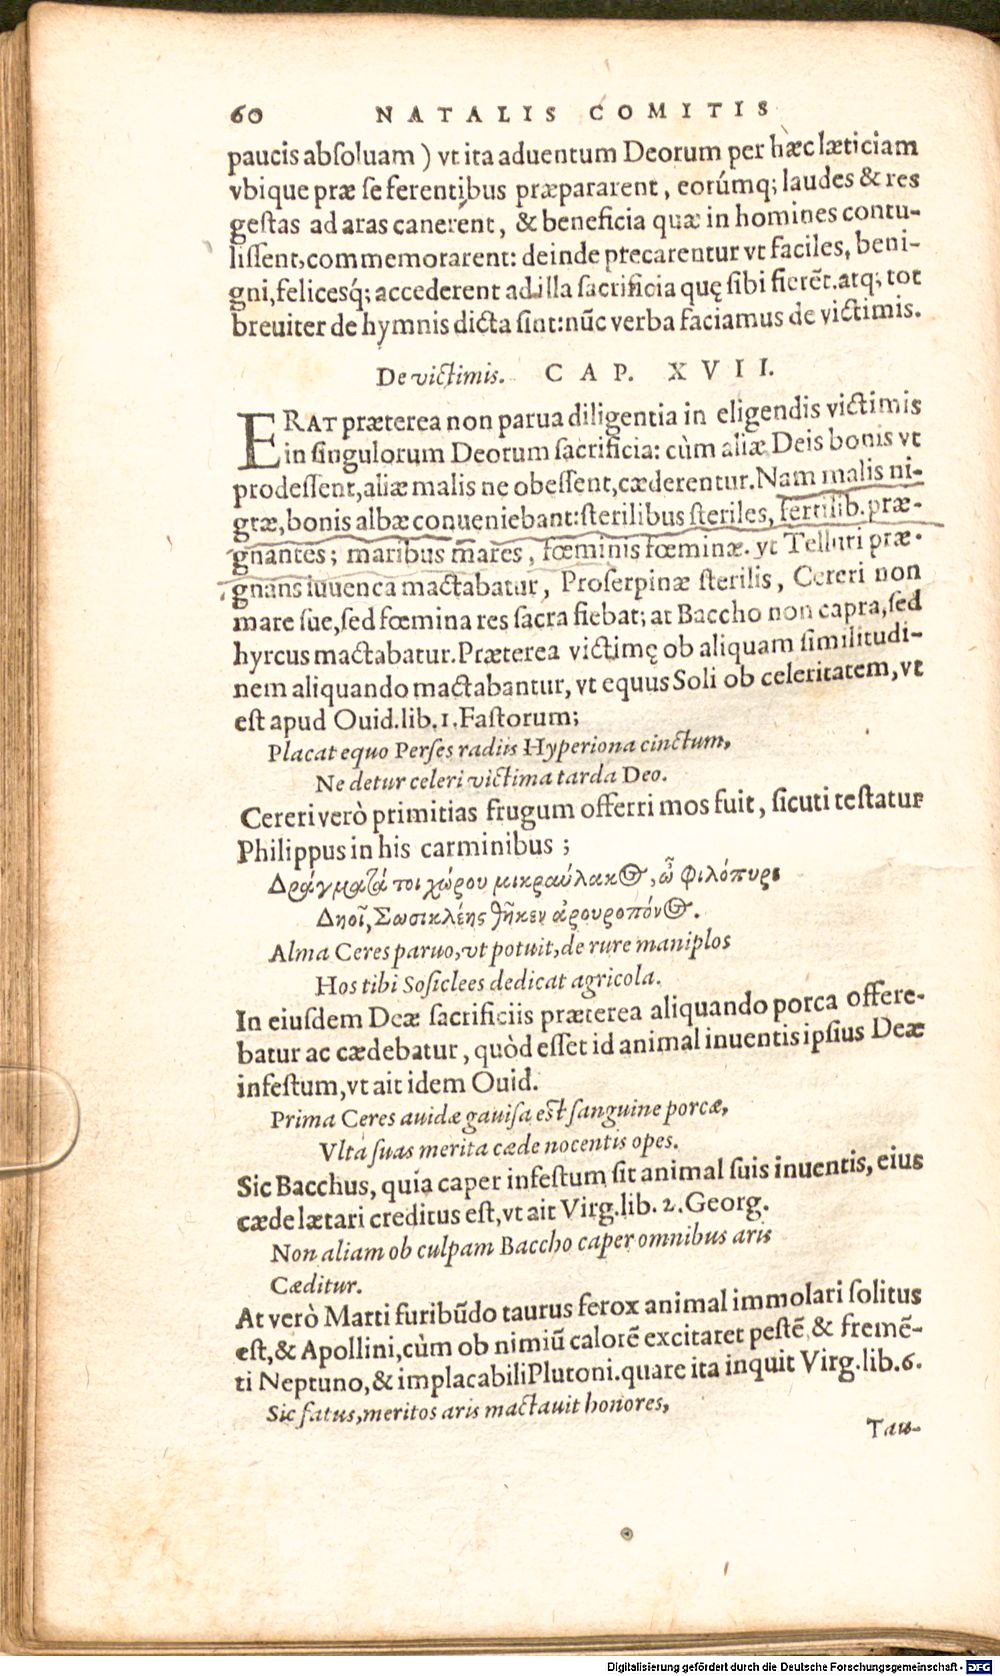 60 NATALIS COMITIS
paucis absoluam) vt ita aduentum Deorum per hæc læticiam
vbique præ se ferentibus præpararent, eorúmq; laudes & res
gestas ad aras canerent, & beneficia quæ in homines contu-
lissent, commemorarent: deinde precarentur vt faciles, beni-
gni, felicesq́; accederent ad illa sacrificia quę sibi fierẽt. atq; tot
breuiter de hymnis dicta sint: nũc verba faciamus de victimis.
De victimis. CAP. XVII.
ERAT præterea non parua diligentia in eligendis victimis
in singulorum Deorum sacrificia: cùm aliæ Deis bonis vt
prodessent, aliæ malis ne obessent, cæderentur. Nam malis ni-
græ, bonis albæ conueniebant: sterilibus steriles, fertilib. præ-
gnantes; maribus mares, fœminis fœminæ. vt Telluri præ-
gnans iuuenca mactabatur, Proserpinæ sterilis, Cereri non
mare sue, sed fœmina res sacra fiebat; at Baccho non capra, sed
hyrcus mactabatur. Præterea victimę ob aliquam similitudi-
nem aliquando mactabantur, vt equus Soli ob celeritatem, vt
est apud Ouid. lib. 1. Fastorum;
Placat equo Perses radiis Hyperiona cinctum,
Ne detur celeri victima tarda Deo.
Cereri verò primitias frugum offerri mos fuit, sicuti testatur
Philippus in his carminibus;
Δράγματά τοι χώρου μικραύλακος, ὦ φιλόπυρε
Δηοῖ, Σωσικλέης θῆκεν ἀρουροπόνος.
Alma Ceres paruo, vt potuit, de rure maniplos
Hos tibi Sosiclees dedicat agricola.
In eiusdem Deæ sacrificiis præterea aliquando porca offere-
batur ac cædebatur, quòd esset id animal inuentis ipsius Deæ
infestum, vt ait idem Ouid.
Prima Ceres auidæ gauisa est sanguine porcæ,
Vlta suas merita cæde nocentis opes.
Sic Bacchus, quia caper infestum sit animal suis inuentis, eius
cæde lætari creditus est, vt ait Virg. lib. 2. Georg.
Non aliam ob culpam Baccho caper omnibus aris
Cæditur.
At verò Marti furibũdo taurus ferox animal immolari solitus
est, & Apollini, cùm ob nimiũ calorẽ excitaret pestẽ, & fremẽ-
ti Neptuno, & implacabili Plutoni. quare ita inquit Virg. lib. 6.
Sic fatus, meritos aris mactauit honores,
Tau-
Digitalisierung gefördert durch die Deutsche Forschungsgemeinschaft - DFG